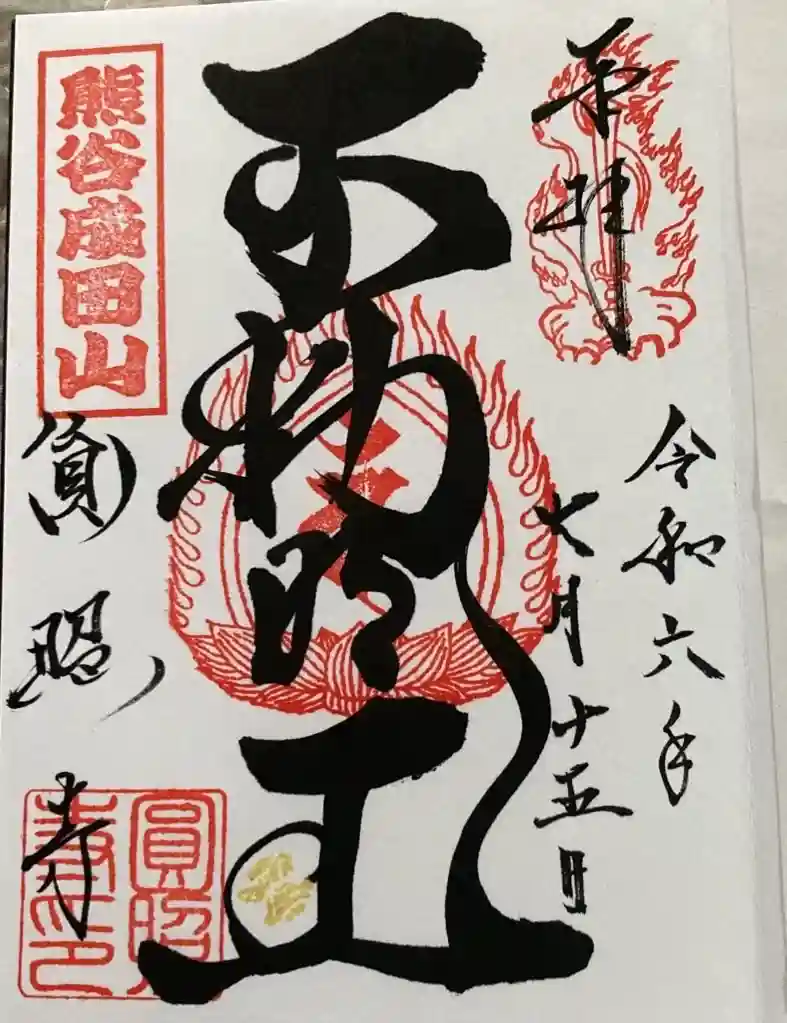 奉拝
令和六年
七月十五日
不動明王
熊谷成田山
圓照寺
圓照寺印